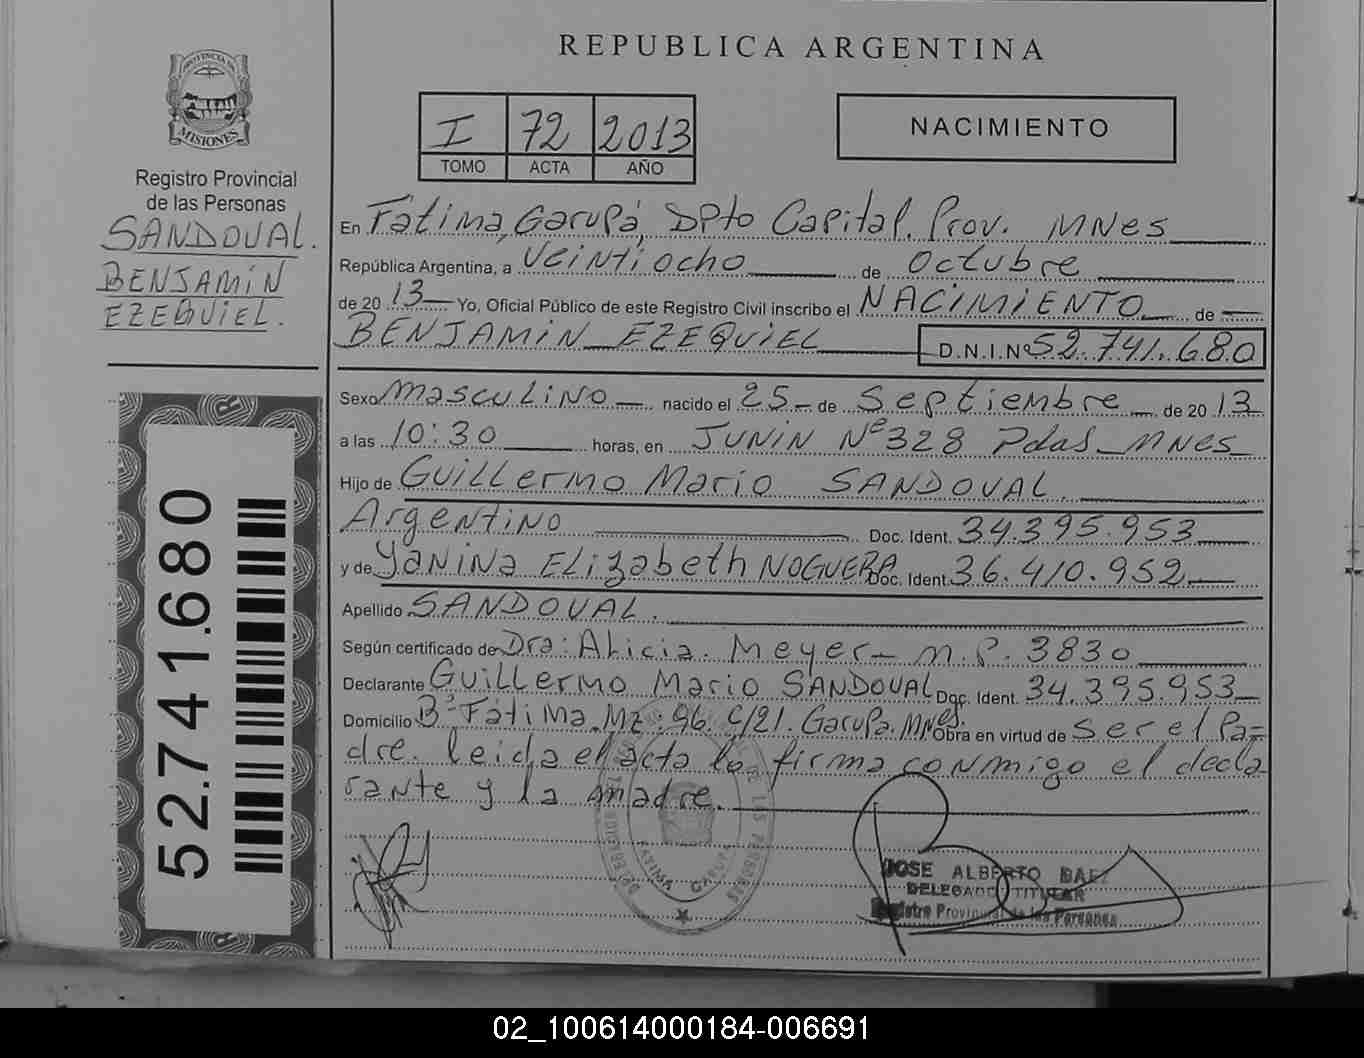 REPUBLICA ARGENTINA
PROVINCIA DE
MISIONES
Registro Provincial
de las Personas
SANDOVAL.
BENJAMIN
EZEQUIEL.
I 72 2013
TOMO ACTA AÑO
NACIMIENTO
En Fátima, Garupá, Dpto Capital. Prov. MNes
República Argentina, a Veintiocho de Octubre
de 20 13 Yo, Oficial Público de este Registro Civil inscribo el NACIMIENTO de
BENJAMIN EZEQUIEL D.N.I.Nº 52.741.680
Sexo Masculino nacido el 25 de Septiembre de 20 13
a las 10:30 horas, en JUNIN Nº 328 Pdas MNes
Hijo de Guillermo Mario SANDOVAL.
Argentino Doc. Ident. 34.395.953
y de Yanina Elizabeth NOGUERA Doc. Ident. 36.410.952
Apellido SANDOVAL.
Según certificado de Dra: Alicia. Meyer M.P. 3830
Declarante Guillermo Mario SANDOVAL Doc. Ident. 34.395.953
Domicilio Bº Fátima Mz: 96. C/21. Garupa. MNes. Obra en virtud de Ser el Pa=
dre. leida el acta la firma conmigo el decla-
rante y la madre.
52.741.680
JOSE ALBERTO BAEZ
DELEGADO TITULAR
Registro Provincial de las Personas
FATIMA GARUPA
02_100614000184-006691